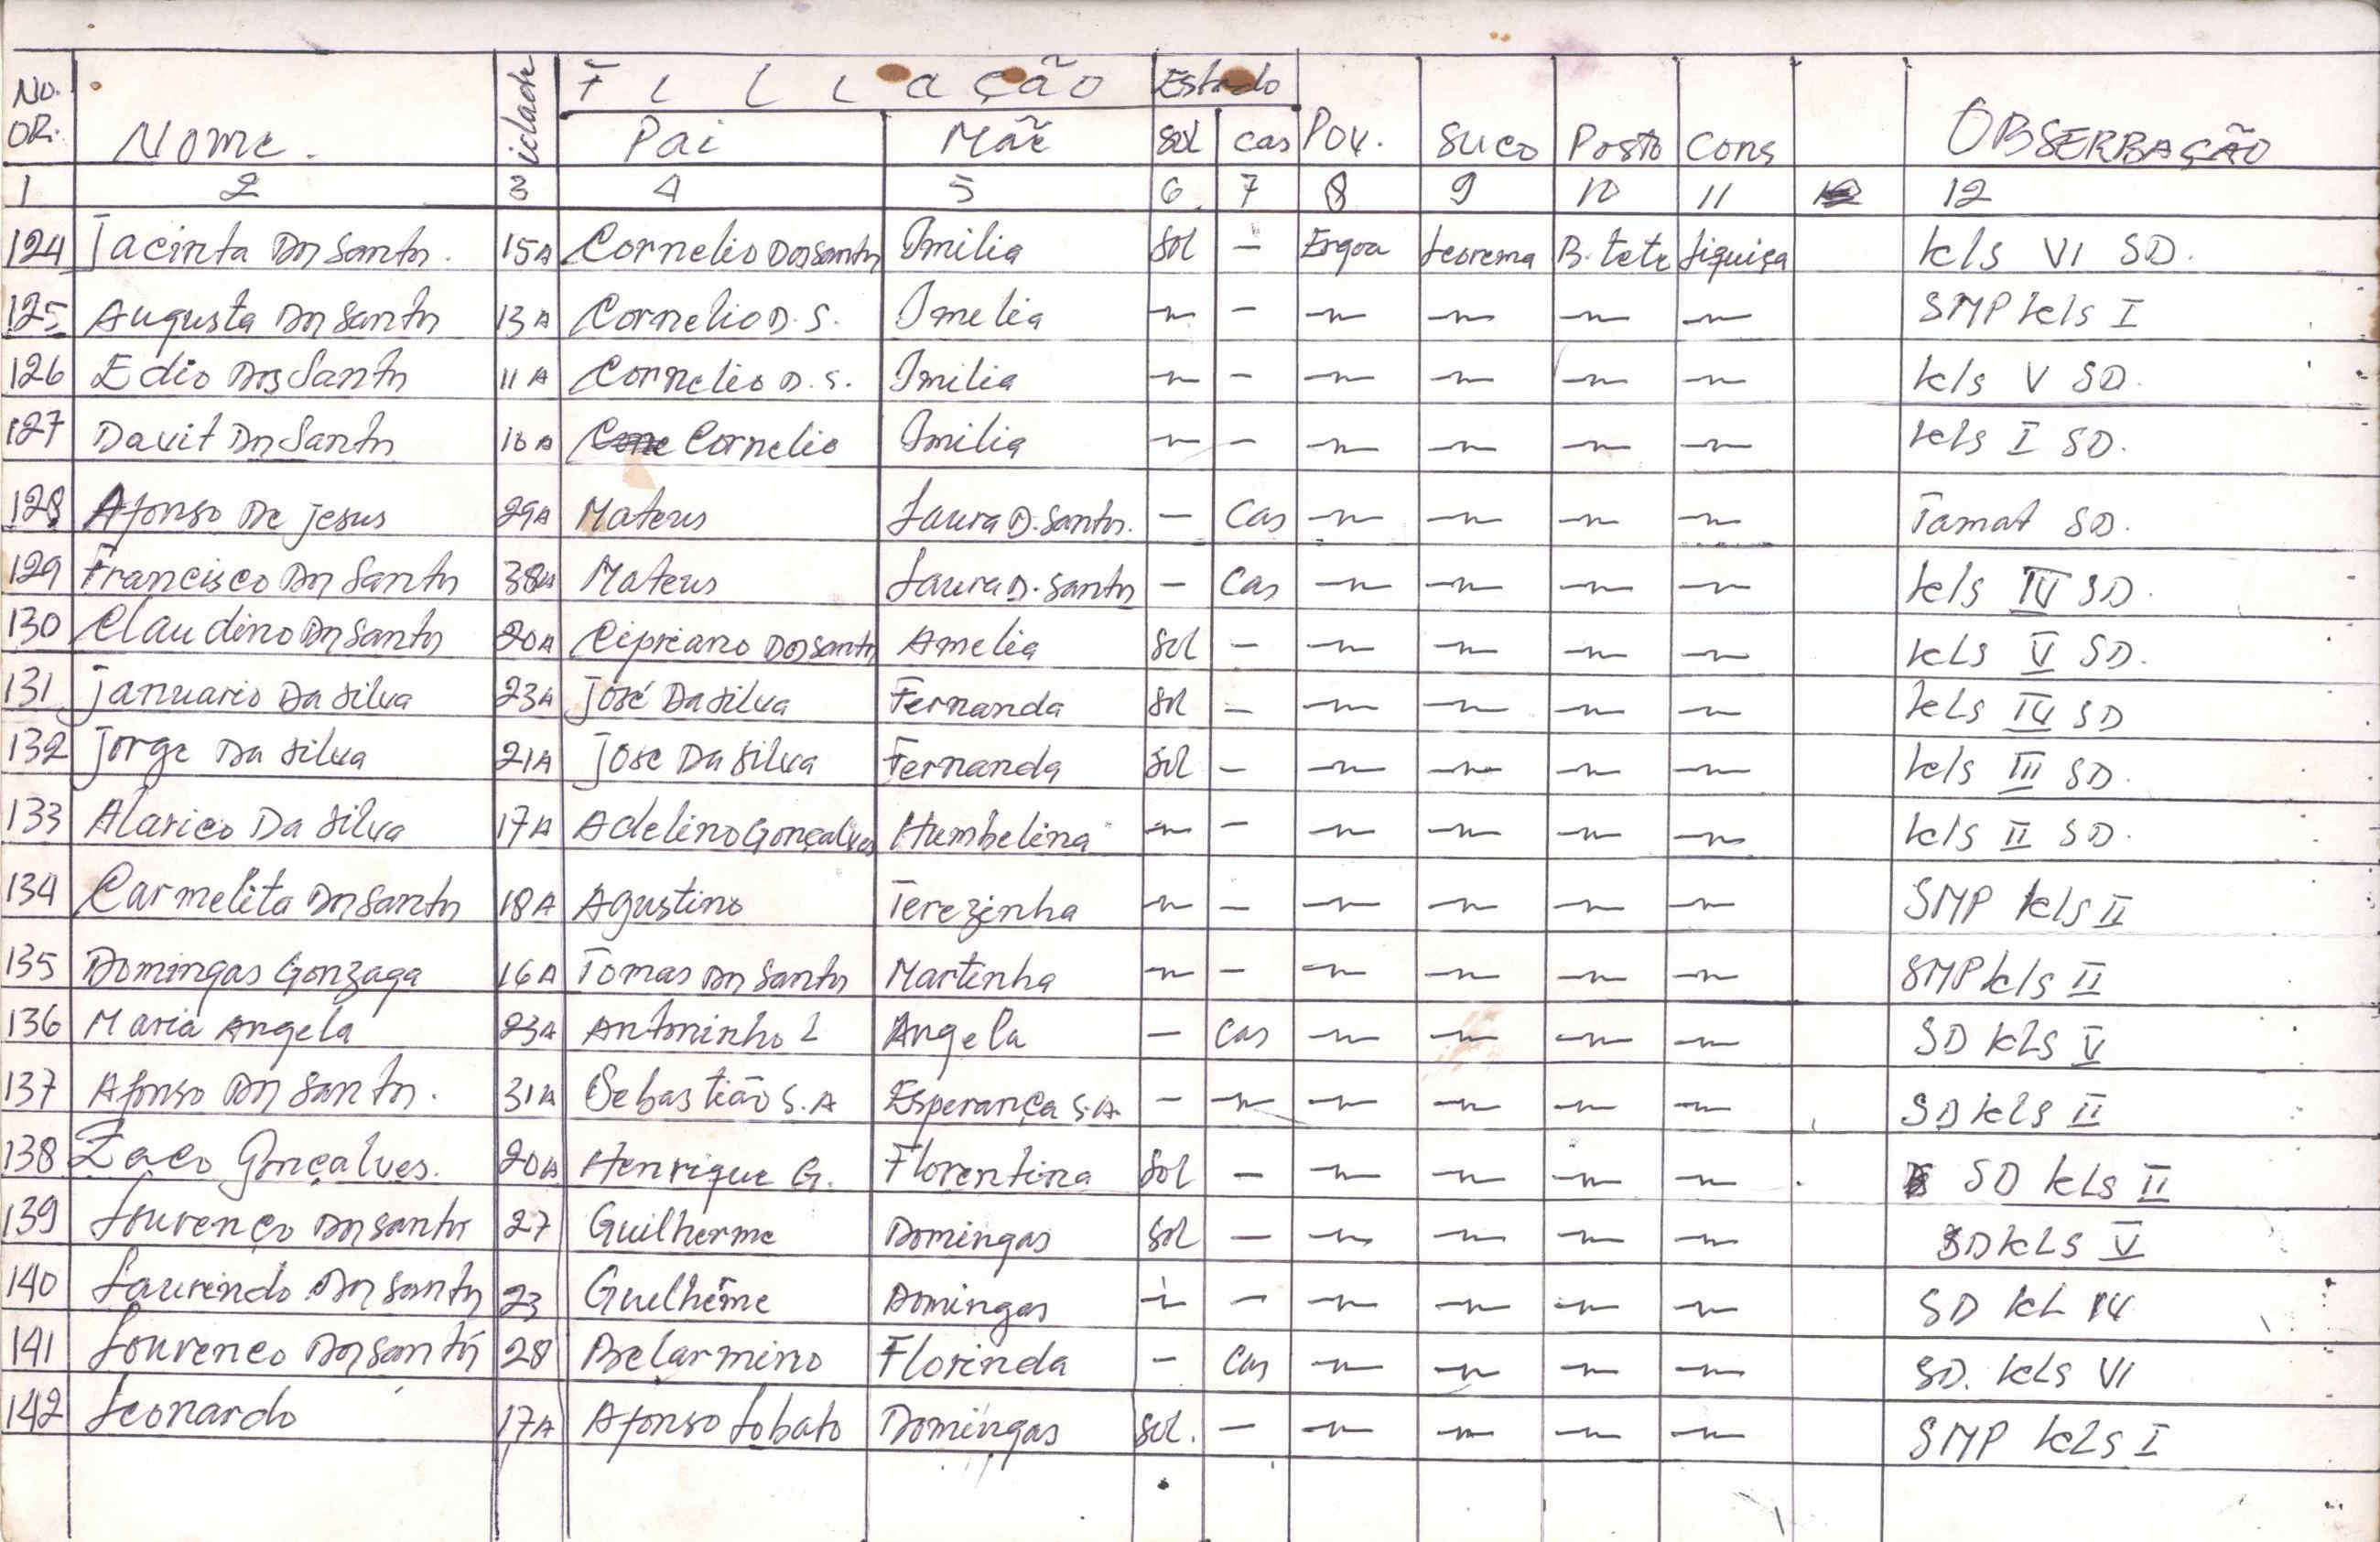 No. OR. Nome. idade Filiação Estado
Pai Mãe Sol cas Pov. Suco Posto Cons OBSERBAÇÃO
1 2 3 4 5 6 7 8 9 10 11 12
124 Jacinta Dos Santos. 15A Cornelio Dos Santos Imilia Sol - Ergoa Leorema B. tete Liquiça kls VI SD.
125 Augusta Dos Santos 13A Cornelio D.S. Imelia ~ - ~ ~ ~ ~ SMP kls I
126 Edio Dos Santos 11A Cornelio D.S. Imilia ~ - ~ ~ ~ ~ kls V SD.
127 Davit Dos Santos 10A Cornelio Imilia ~ - ~ ~ ~ ~ kls I SD.
128 Afonso De Jesus 29A Mateus Laura D. Santos. - Cas ~ ~ ~ ~ Tamat SD.
129 Francisco Dos Santos 38A Mateus Laura D. Santos - Cas ~ ~ ~ ~ kls IV SD.
130 Claudino Dos Santos 20A Cipriano Dos Santos Amelia Sol - ~ ~ ~ ~ kLs V SD.
131 Januario Da Silva 23A José Da Silva Fernanda Sol - ~ ~ ~ ~ kLs IV SD
132 Jorge Da Silva 21A Jose Da Silva Fernanda Sol - ~ ~ ~ ~ kls III SD.
133 Alarico Da Silva 17A Adelino Gonçalves Humbelina ~ - ~ ~ ~ ~ kls II SD.
134 Carmelita Dos Santos 18A Agustino Terezinha ~ - ~ ~ ~ ~ SMP kls II
135 Domingas Gonzaga 16A Tomas Dos Santos Martinha ~ - ~ ~ ~ ~ SMP kls II
136 Maria Angela 23A Antoninho L Angela - Cas ~ ~ ~ ~ SD kLs V
137 Afonso Dos Santos. 31A Sebastião S.A Esperança S.A. - ~ ~ ~ ~ ~ SD kLs II
138 Zaco Gonçalves. 20A Henrique G. Florentina Sol - ~ ~ ~ ~ SD kLs II
139 Lourenço Dos Santos 27 Guilherme Domingas Sol - ~ ~ ~ ~ SD kLs V
140 Laurindo Dos Santos 23 Guilheme Domingas ~ - ~ ~ ~ ~ SD kL IV
141 Lourenco Dos Santos 28 Belarmino Florinda - Cas ~ ~ ~ ~ SD. kLs VI
142 Leonardo 17A Afonso Lobato Domingas Sol. - ~ ~ ~ ~ SMP kLs I